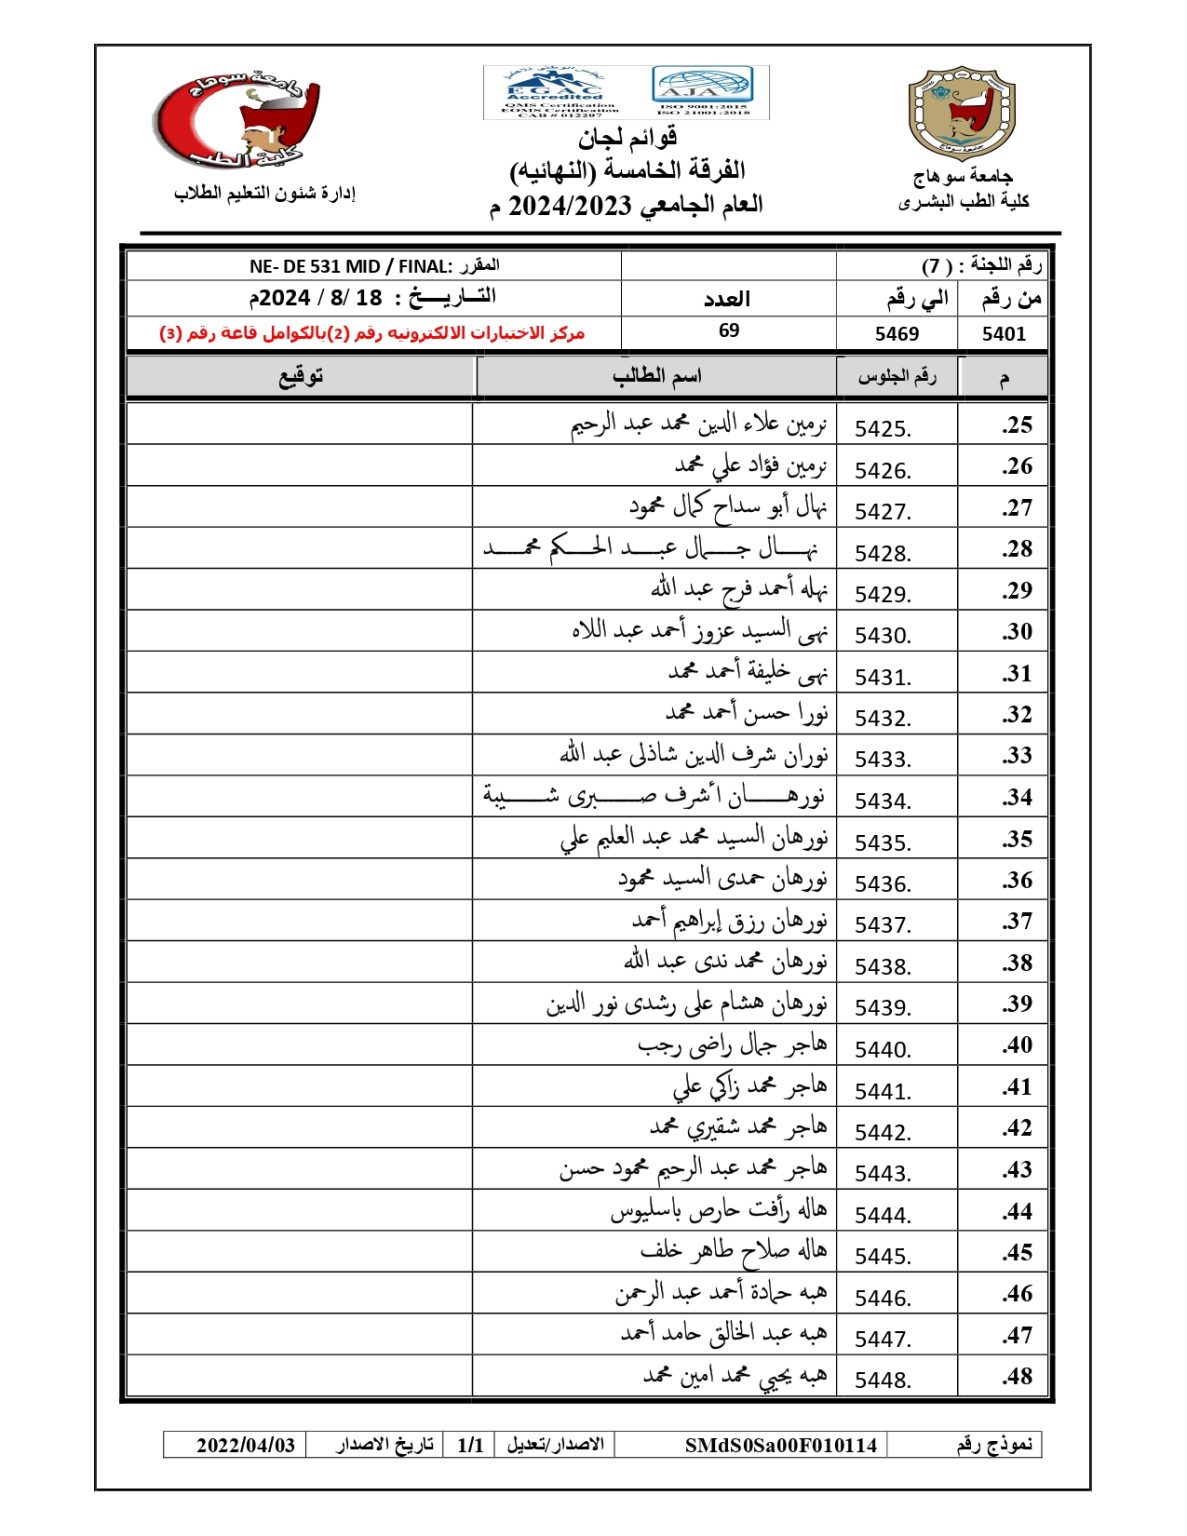 جامعة سوهاج
كلية الطب البشرى
EGAC
Accredited
QMS Certification
EOMS Certification
CAB # 012207
AJA
ISO 9001:2015
ISO 21001:2018
قوائم لجان
الفرقة الخامسة (النهائيه)
العام الجامعي 2024/2023 م
جامعة سوهاج
كلية الطب
إدارة شئون التعليم الطلاب
رقم اللجنة : ( 7) المقرر :NE- DE 531 MID / FINAL
من رقم الي رقم العدد التـاريـــخ : 18 /8 / 2024م
5401 5469 69 مركز الاختبارات الالكترونيه رقم (2)بالكوامل قاعة رقم (3)
م رقم الجلوس اسم الطالب توقيع
25. 5425. نرمين علاء الدين محمد عبد الرحيم
26. 5426. نرمين فؤاد علي محمد
27. 5427. نهال أبو سداح كمال محمود
28. 5428. نهـــال جـــمال عبـــد الحـــكم محمـــد
29. 5429. نهله أحمد فرج عبد الله
30. 5430. نهى السيد عزوز أحمد عبد اللاه
31. 5431. نهى خليفة أحمد محمد
32. 5432. نورا حسن أحمد محمد
33. 5433. نوران شرف الدين شاذلى عبد الله
34. 5434. نورهـــــان أشرف صـــــبرى شـــــيبة
35. 5435. نورهان السيد محمد عبد العليم علي
36. 5436. نورهان حمدى السيد محمود
37. 5437. نورهان رزق إبراهيم أحمد
38. 5438. نورهان محمد ندى عبد الله
39. 5439. نورهان هشام على رشدى نور الدين
40. 5440. هاجر جمال راضى رجب
41. 5441. هاجر محمد زاكي علي
42. 5442. هاجر محمد شقيري محمد
43. 5443. هاجر محمد عبد الرحيم محمود حسن
44. 5444. هاله رأفت حارص باسليوس
45. 5445. هاله صلاح طاهر خلف
46. 5446. هبه حمادة أحمد عبد الرحمن
47. 5447. هبه عبد الخالق حامد أحمد
48. 5448. هبه يحيي محمد امين محمد
نموذج رقم SMdS0Sa00F010114 الاصدار/تعديل 1/1 تاريخ الاصدار 2022/04/03